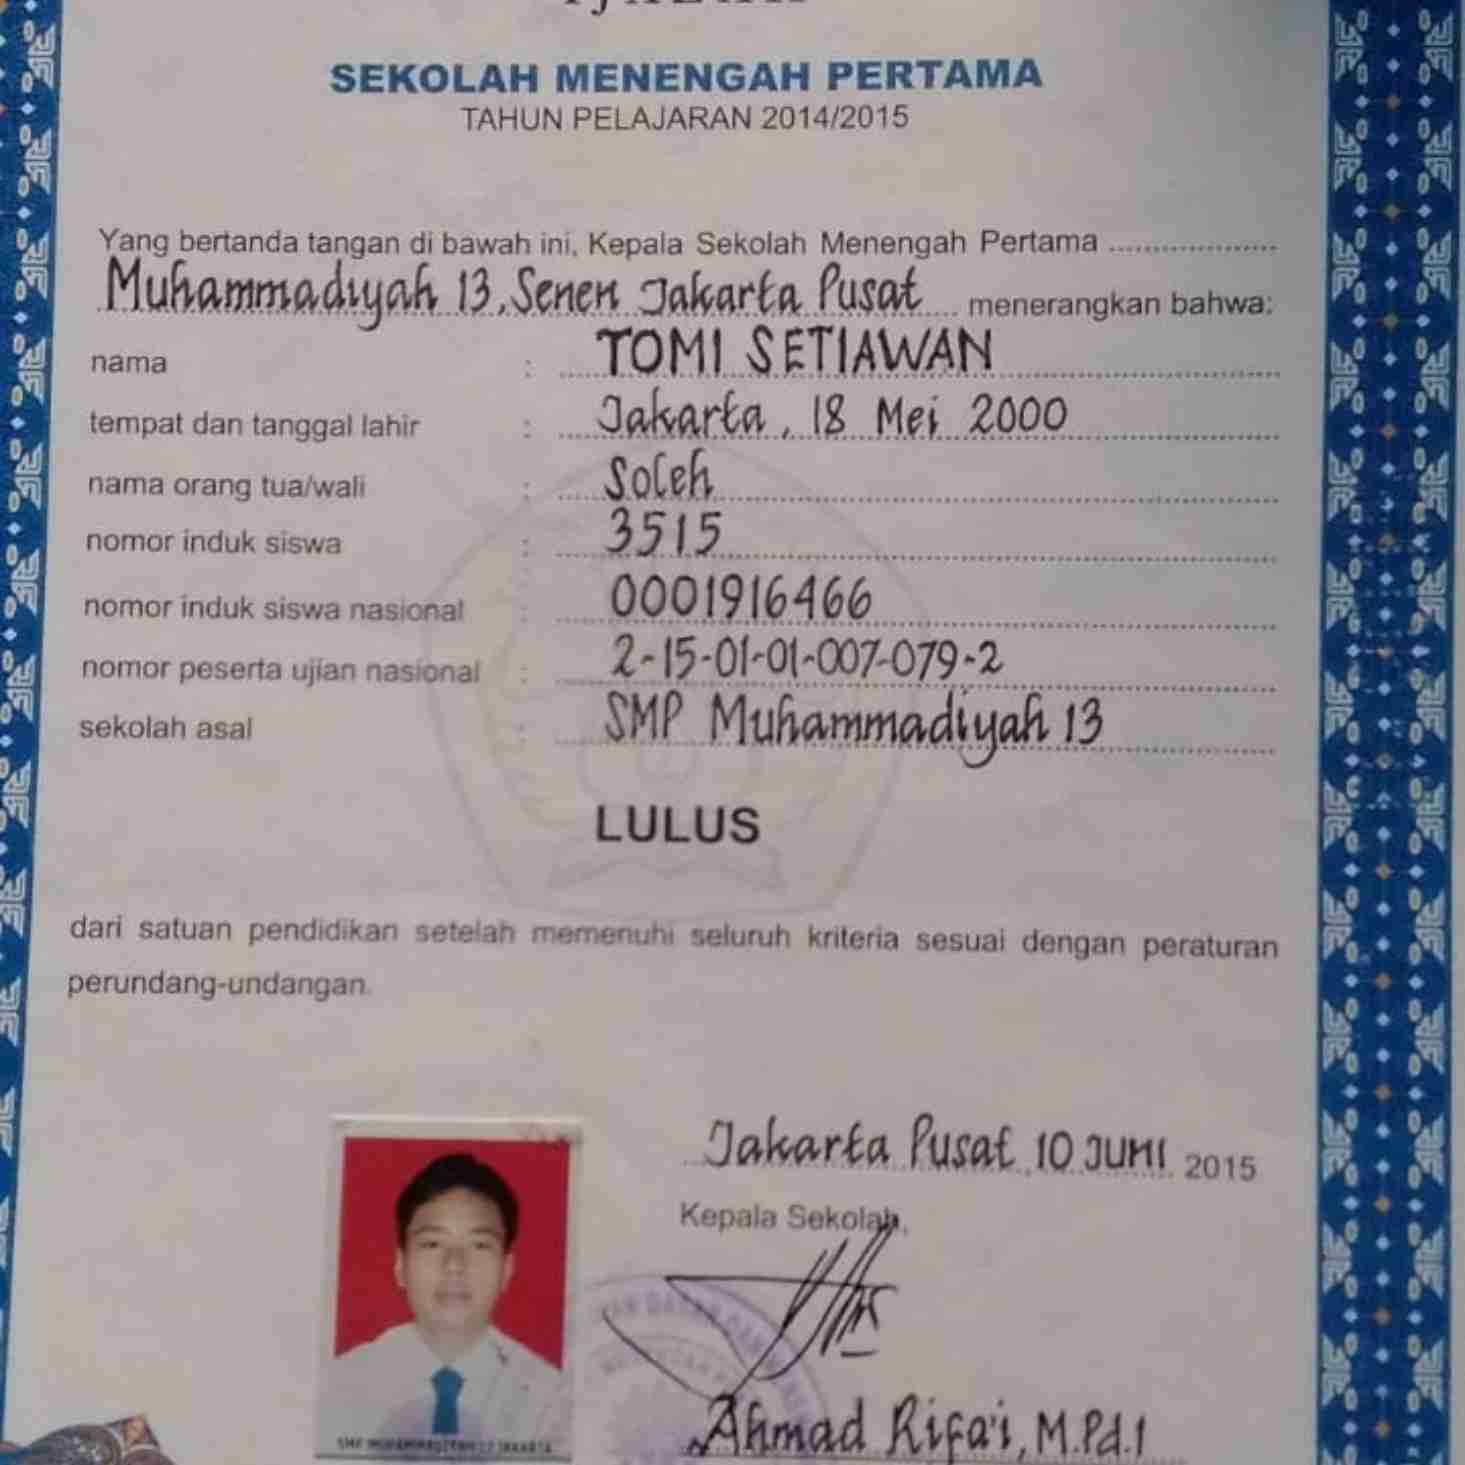 SEKOLAH MENENGAH PERTAMA
TAHUN PELAJARAN 2014/2015
Yang bertanda tangan di bawah ini, Kepala Sekolah Menengah Pertama
Muhammadiyah 13, Senen Jakarta Pusat menerangkan bahwa:
nama : TOMI SETIAWAN
tempat dan tanggal lahir : Jakarta, 18 Mei 2000
nama orang tua/wali : Soleh
nomor induk siswa : 3515
nomor induk siswa nasional : 0001916466
nomor peserta ujian nasional : 2-15-01-01-007-079-2
sekolah asal : SMP Muhammadiyah 13
LULUS
dari satuan pendidikan setelah memenuhi seluruh kriteria sesuai dengan peraturan
perundang-undangan.
Jakarta Pusat, 10 JUNI 2015
Kepala Sekolah,
Ahmad Rifa'i, M.Pd.I